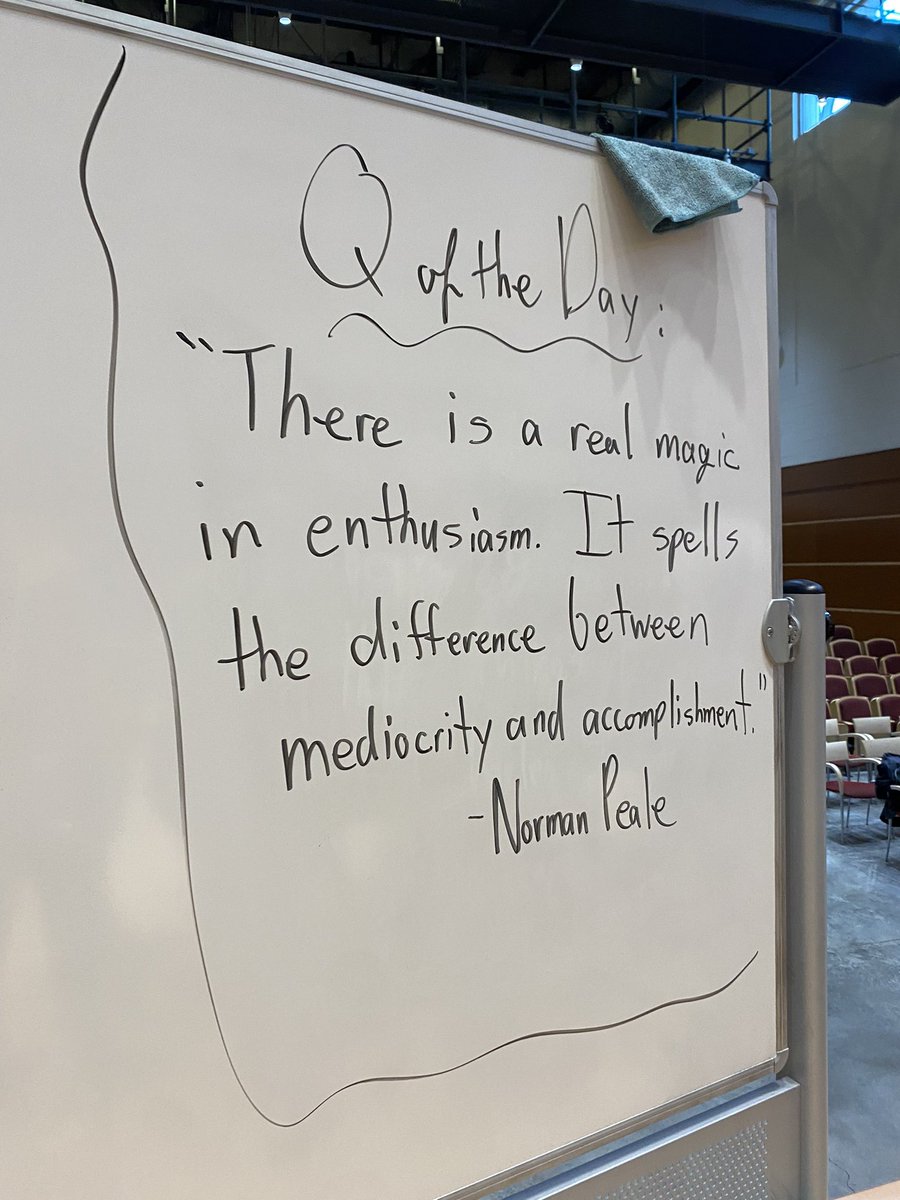 Q of the Day:
"There is a real magic
in enthusiasm. It spells
the difference between
mediocrity and accomplishment."
-Norman Peale